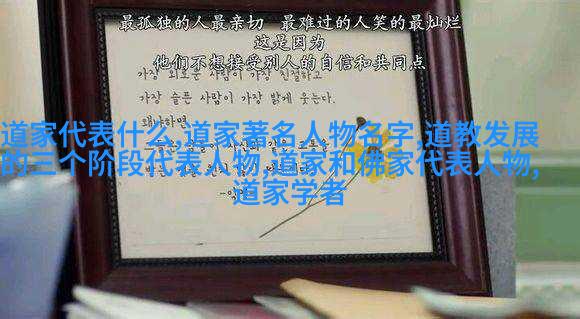 最孤独的人最亲切 最难过的人笑的最灿烂
这是因为
他们不想接受别人的自信和共同点
가장 외로운 사람이 가장 친절하고
가장 슬픈 사람이 가장 밝게 웃는다.
왜냐하면
道家代表什么,道家著名人物名字,道教发展
的三个阶段代表人物,道家和佛家代表人物,
道家学者